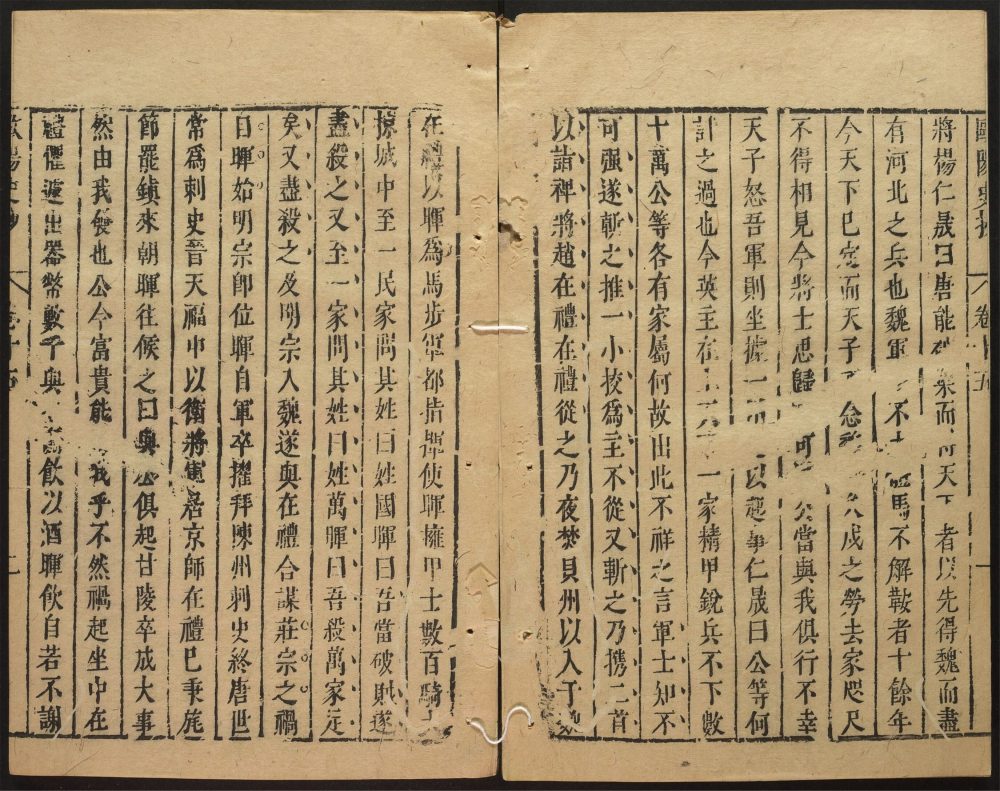 歐陽史抄 卷十五
將楊仁晟曰唐能破梁而 天下者以先得魏而盡
有河北之兵也魏軍 不 馬不解鞍者十餘年
今天下已定而天子 念 戍之勞去家咫尺
不得相見今將士思歸 可 公當與我俱行不幸
天子怒吾軍則坐據一 以起事仁晟曰公等何
計之過也今英主在上 一家精甲銳兵不下數
十萬公等各有家屬何故出此不祥之言軍士知不
可强遂斬之推一小挍爲主不從又斬之乃携二首
以詣禆將趙在禮在禮從之乃夜焚貝州以入于魏
在禮以暉爲馬步軍都指揮使暉擁甲士數百騎大
掠城中至一民家問其姓曰姓國暉曰吾當破國遂
盡殺之又至一家問其姓曰姓萬暉曰吾殺萬家足
矣又盡殺之及明宗入魏遂與在禮合謀莊宗之禍
自暉始明宗卽位暉自軍卒擢拜陳州刺史終唐世
常爲刺史晉天福中以衛將軍居京師在禮已秉旄
節罷鎮來朝暉往候之曰與公俱起甘陵卒成大事
然由我發也公今富貴能 我乎不然禍起坐中在
禮懼遽出器幣數千與 飲以酒暉飲自若不謝
歐陽史抄 卷十五 二